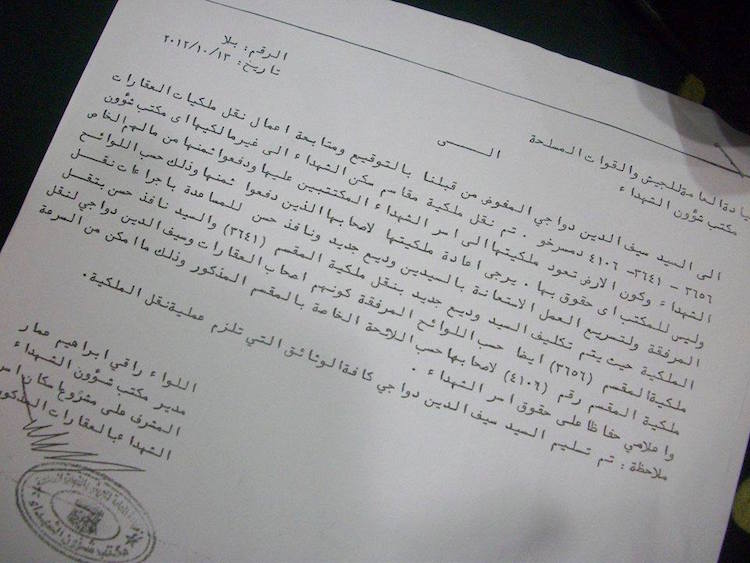 الرقم: بلا
تاريخ: ٢٠١٢/١٠/١٣
يادة العامة للجيش والقوات المسلحة
مكتب شؤون الشهداء
الـــى
الى السيد سيف الدين دواجي المفوض من قبلنا بالتوقيع ومتابعة اعمال نقل ملكيات العقارات
٣٦٥٦ – ٣٦٤١- ٤١٠٦ دمسرخو . تم نقل ملكية مقاسم سكن الشهداء الى غير مالكيها اى مكتب شؤون
الشهداء وكون الارض تعود ملكيتها الى اسر الشهداء المكتتبين عليها ودفعوا ثمنها من مالهم الخاص
وليس للمكتب اى حقوق بها . يرجى اعادة ملكيتها لاصحابها الذين دفعوا ثمنها وذلك حسب اللوائح
المرفقة ولتسريع العمل الاستعانة بالسيدين وديع جديد ونافذ حسن للمساعدة باجراءات نقـــل
الملكية حيث يتم تكليف السيد وديع جديد بنقل ملكية المقسم (٣٦٤١) والسيد نافذ حسن بنقل
ملكية المقسم (٣٦٥٦) ايضا حسب اللوائح المرفقة كونهم اصحاب العقارات وسيف الدين دواجي لنقل
ملكية المقسم رقم (٤١٠٦) لاصحابها حسب اللائحة الخاصة بالمقسم المذكور وذلك ما امكن من السرعة
واعلامي حفاظا على حقوق اسر الشهداء .
ملاحظة : تم تسليم السيد سيف الدين دواجي كافة الوثائق التي تلزم عملية نقل الملكية.
اللواء راقي ابراهيم عمار
مدير مكتب شؤون الشهداء
المشرف على مشروع اسكان اسر
الشهداء بالعقارات المذكور
مكتب شؤون الشهداء